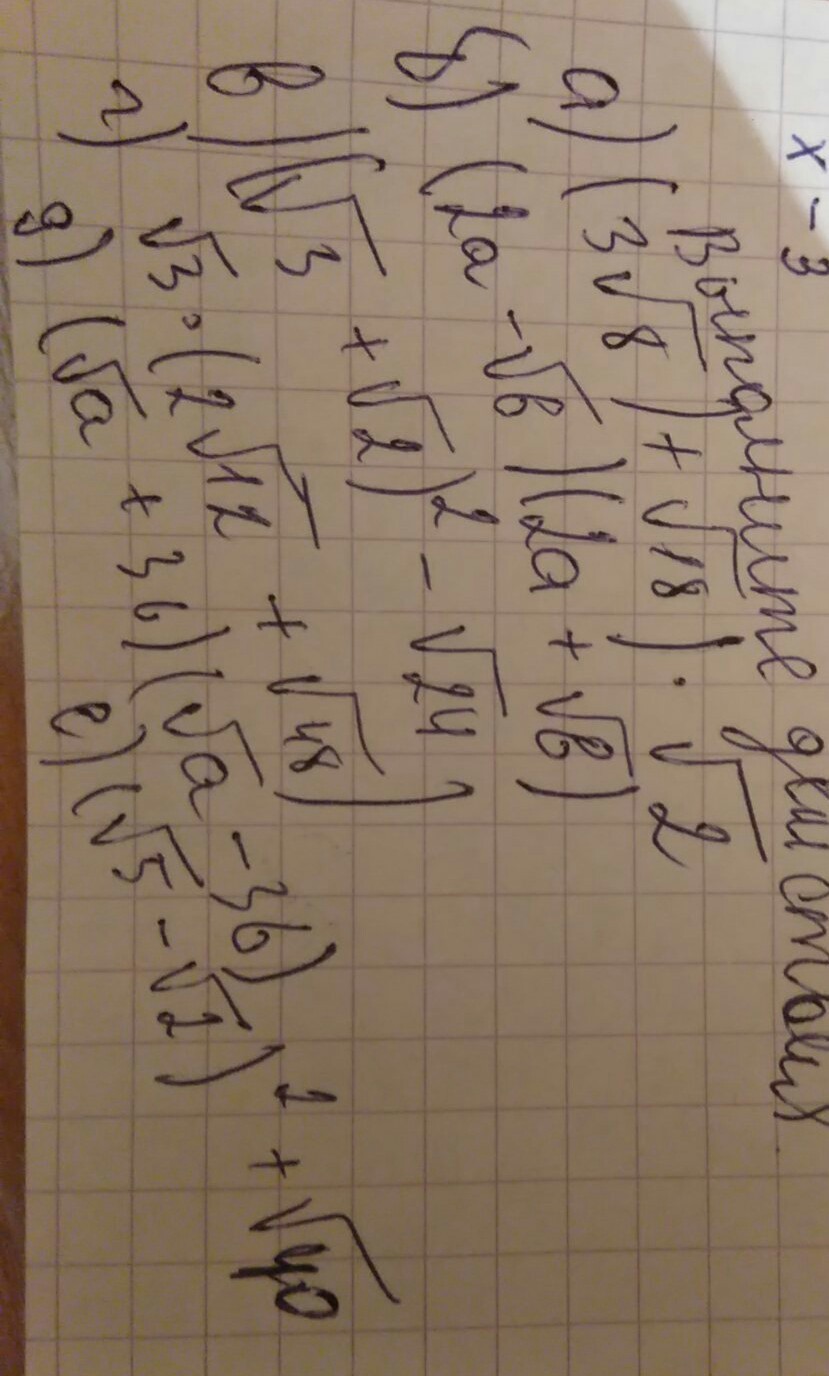 x - 3
Выполните действия
а) (3√8) + √18) · √2
б) (2a - √b)(2a + √b)
в) (√3 + √2)² - √24)
г) √3 · (2√12 + √48)
д) (√a + 3b)(√a - 3b)
е) (√5 - √2)² + √40